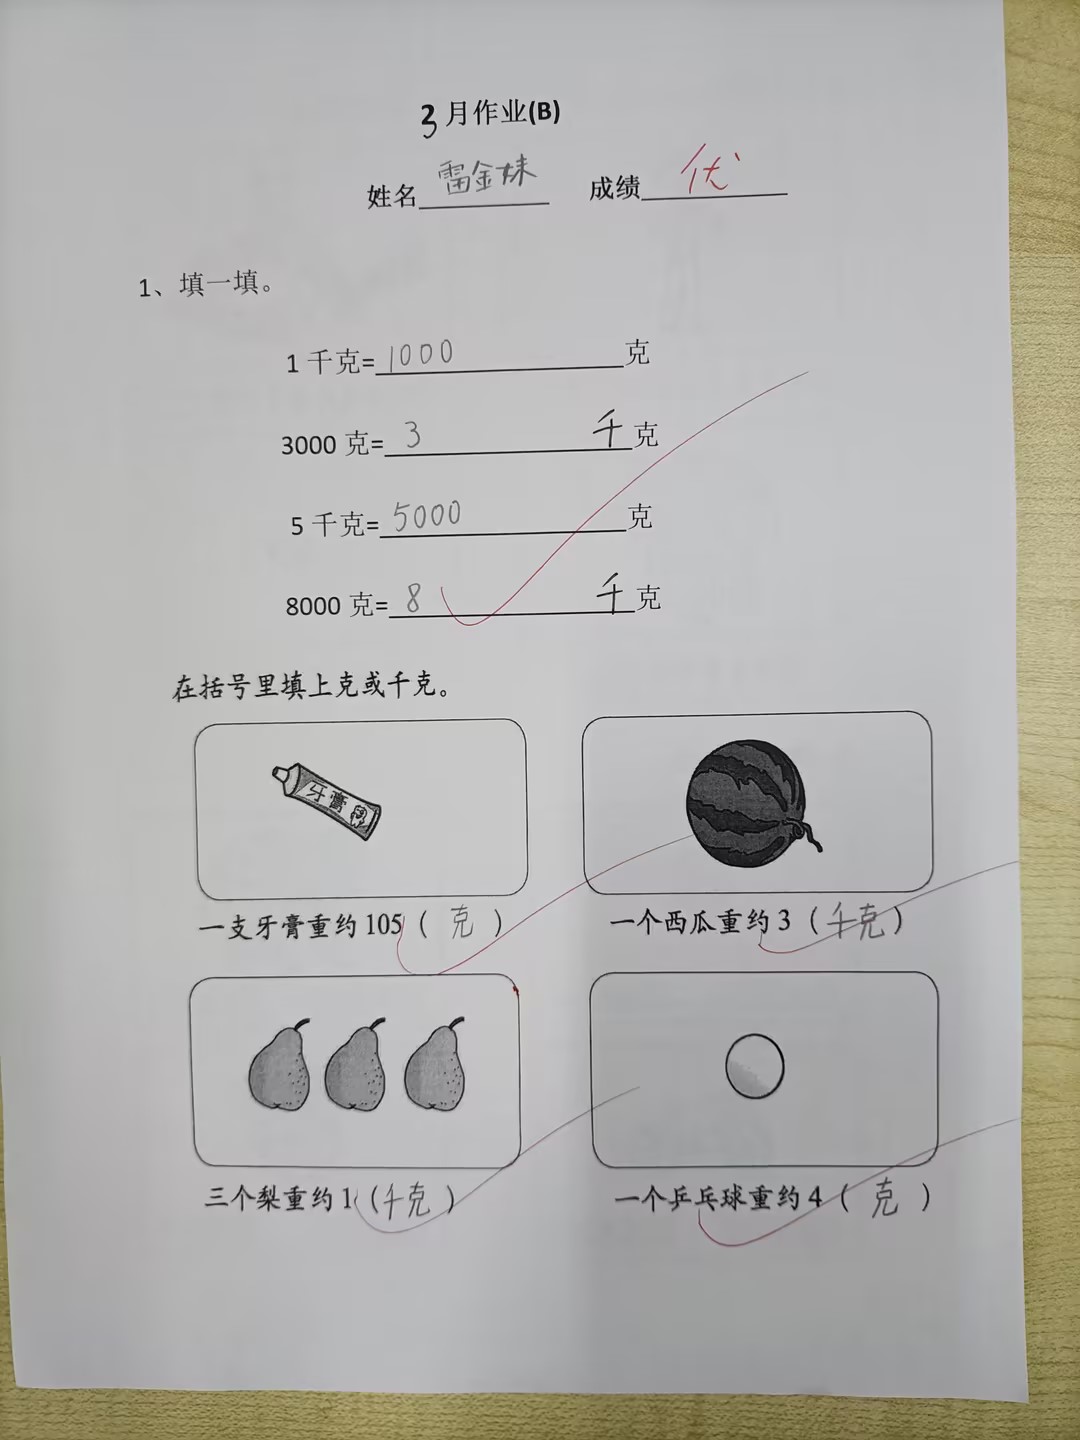 3月作业(B)
姓名 雷金妹 成绩 优
1、填一填。
1 千克=1000 克
3000 克=3 千克
5 千克=5000 克
8000 克=8 千克
在括号里填上克或千克。
牙膏
一支牙膏重约 105（ 克 ） 一个西瓜重约 3（千克）
三个梨重约 1（千克） 一个乒乓球重约 4（ 克 ）